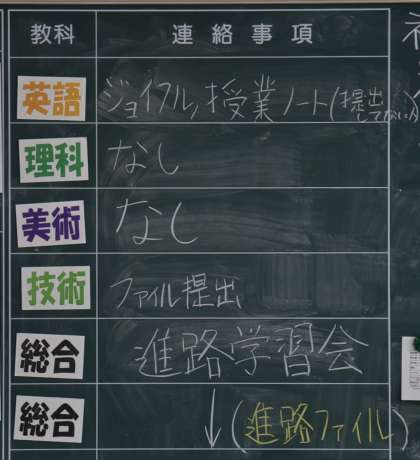 教科 連絡事項
英語 ジョイフル, 授業ノート(提出
してない人
理科 なし
美術 なし
技術 ファイル提出
総合 進路学習会
総合 ↓(進路ファイル)